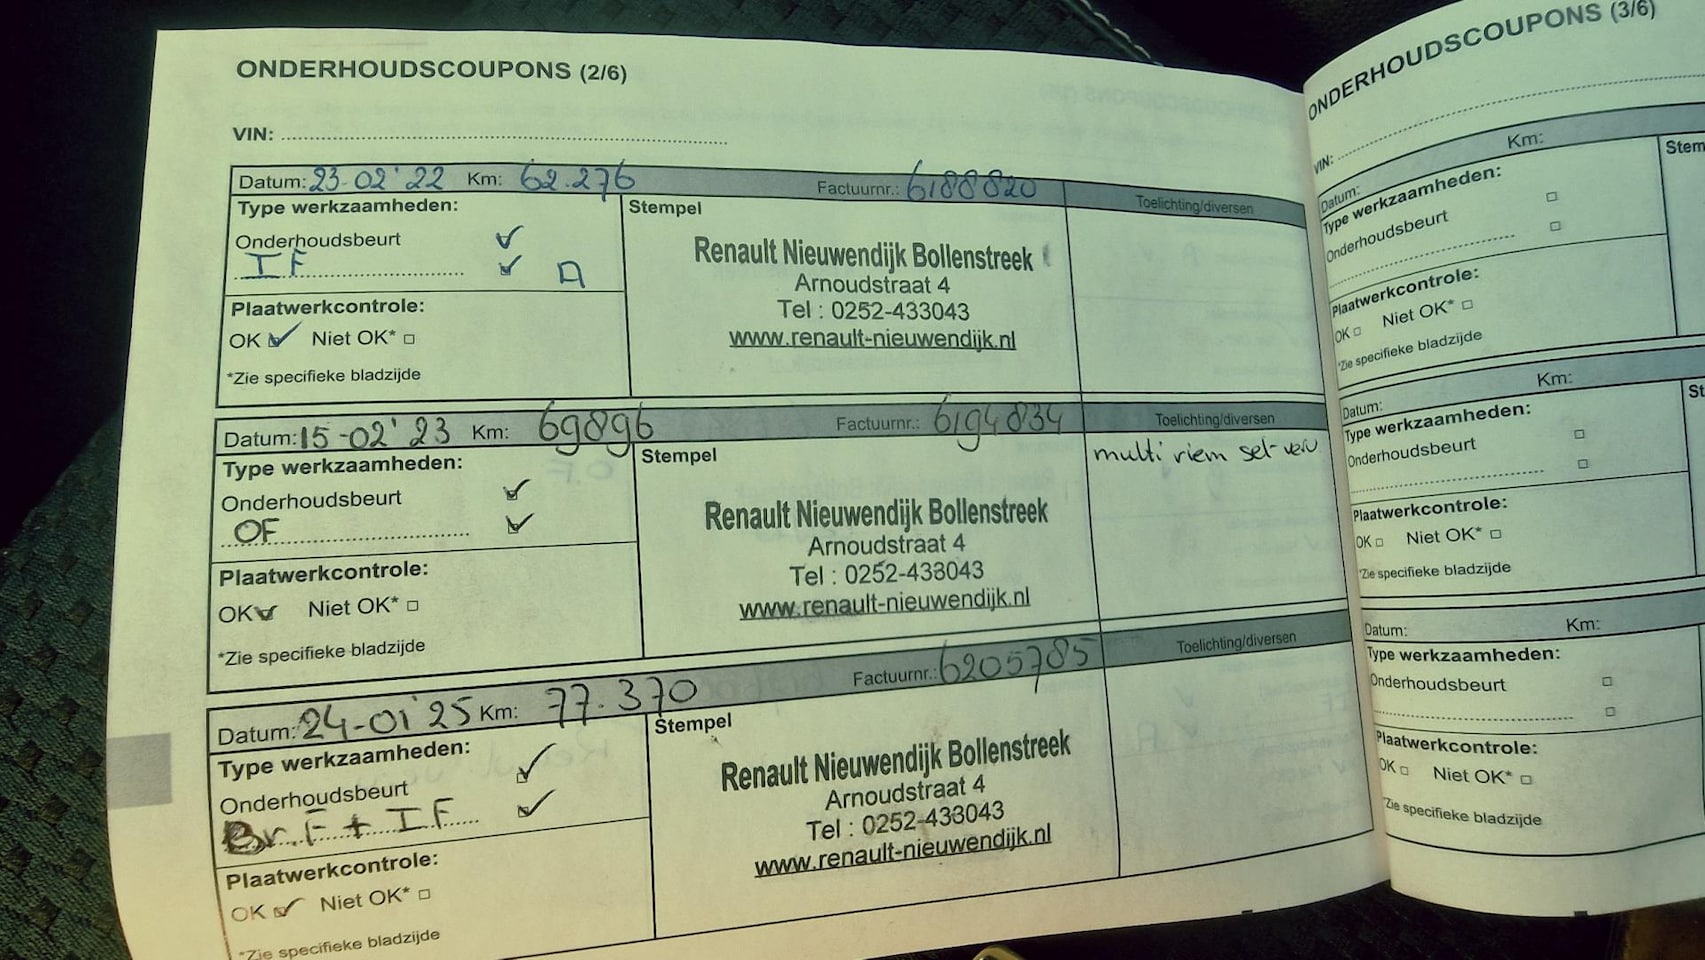 ONDERHOUDSCOUPONS (2/6)
VIN:
Datum: 23-02'22 Km: 62.276 Factuurnr.: 6188820 Toelichting/diversen
Type werkzaamheden: Stempel
Onderhoudsbeurt
IF A
Plaatwerkcontrole:
OK Niet OK*
*Zie specifieke bladzijde
Renault Nieuwendijk Bollenstreek
Arnoudstraat 4
Tel : 0252-433043
www.renault-nieuwendijk.nl
Datum: 15-02'23 Km: 69896 Factuurnr.: 6194834 Toelichting/diversen
Type werkzaamheden: Stempel
Onderhoudsbeurt
OF
Plaatwerkcontrole:
OK Niet OK*
*Zie specifieke bladzijde
Renault Nieuwendijk Bollenstreek
Arnoudstraat 4
Tel : 0252-433043
www.renault-nieuwendijk.nl
multi riem set verv
Datum: 24-01'25 Km: 77.370 Factuurnr.: 6205785 Toelichting/diversen
Type werkzaamheden: Stempel
Onderhoudsbeurt
Br.F + IF
Plaatwerkcontrole:
OK Niet OK*
*Zie specifieke bladzijde
Renault Nieuwendijk Bollenstreek
Arnoudstraat 4
Tel : 0252-433043
www.renault-nieuwendijk.nl
ONDERHOUDSCOUPONS (3/6)
VIN:
Datum: Km:
Type werkzaamheden: Stem
Onderhoudsbeurt
Plaatwerkcontrole:
OK Niet OK*
*Zie specifieke bladzijde
Datum: Km:
Type werkzaamheden: St
Onderhoudsbeurt
Plaatwerkcontrole:
OK Niet OK*
*Zie specifieke bladzijde
Datum: Km:
Type werkzaamheden:
Onderhoudsbeurt
Plaatwerkcontrole:
OK Niet OK*
*Zie specifieke bladzijde